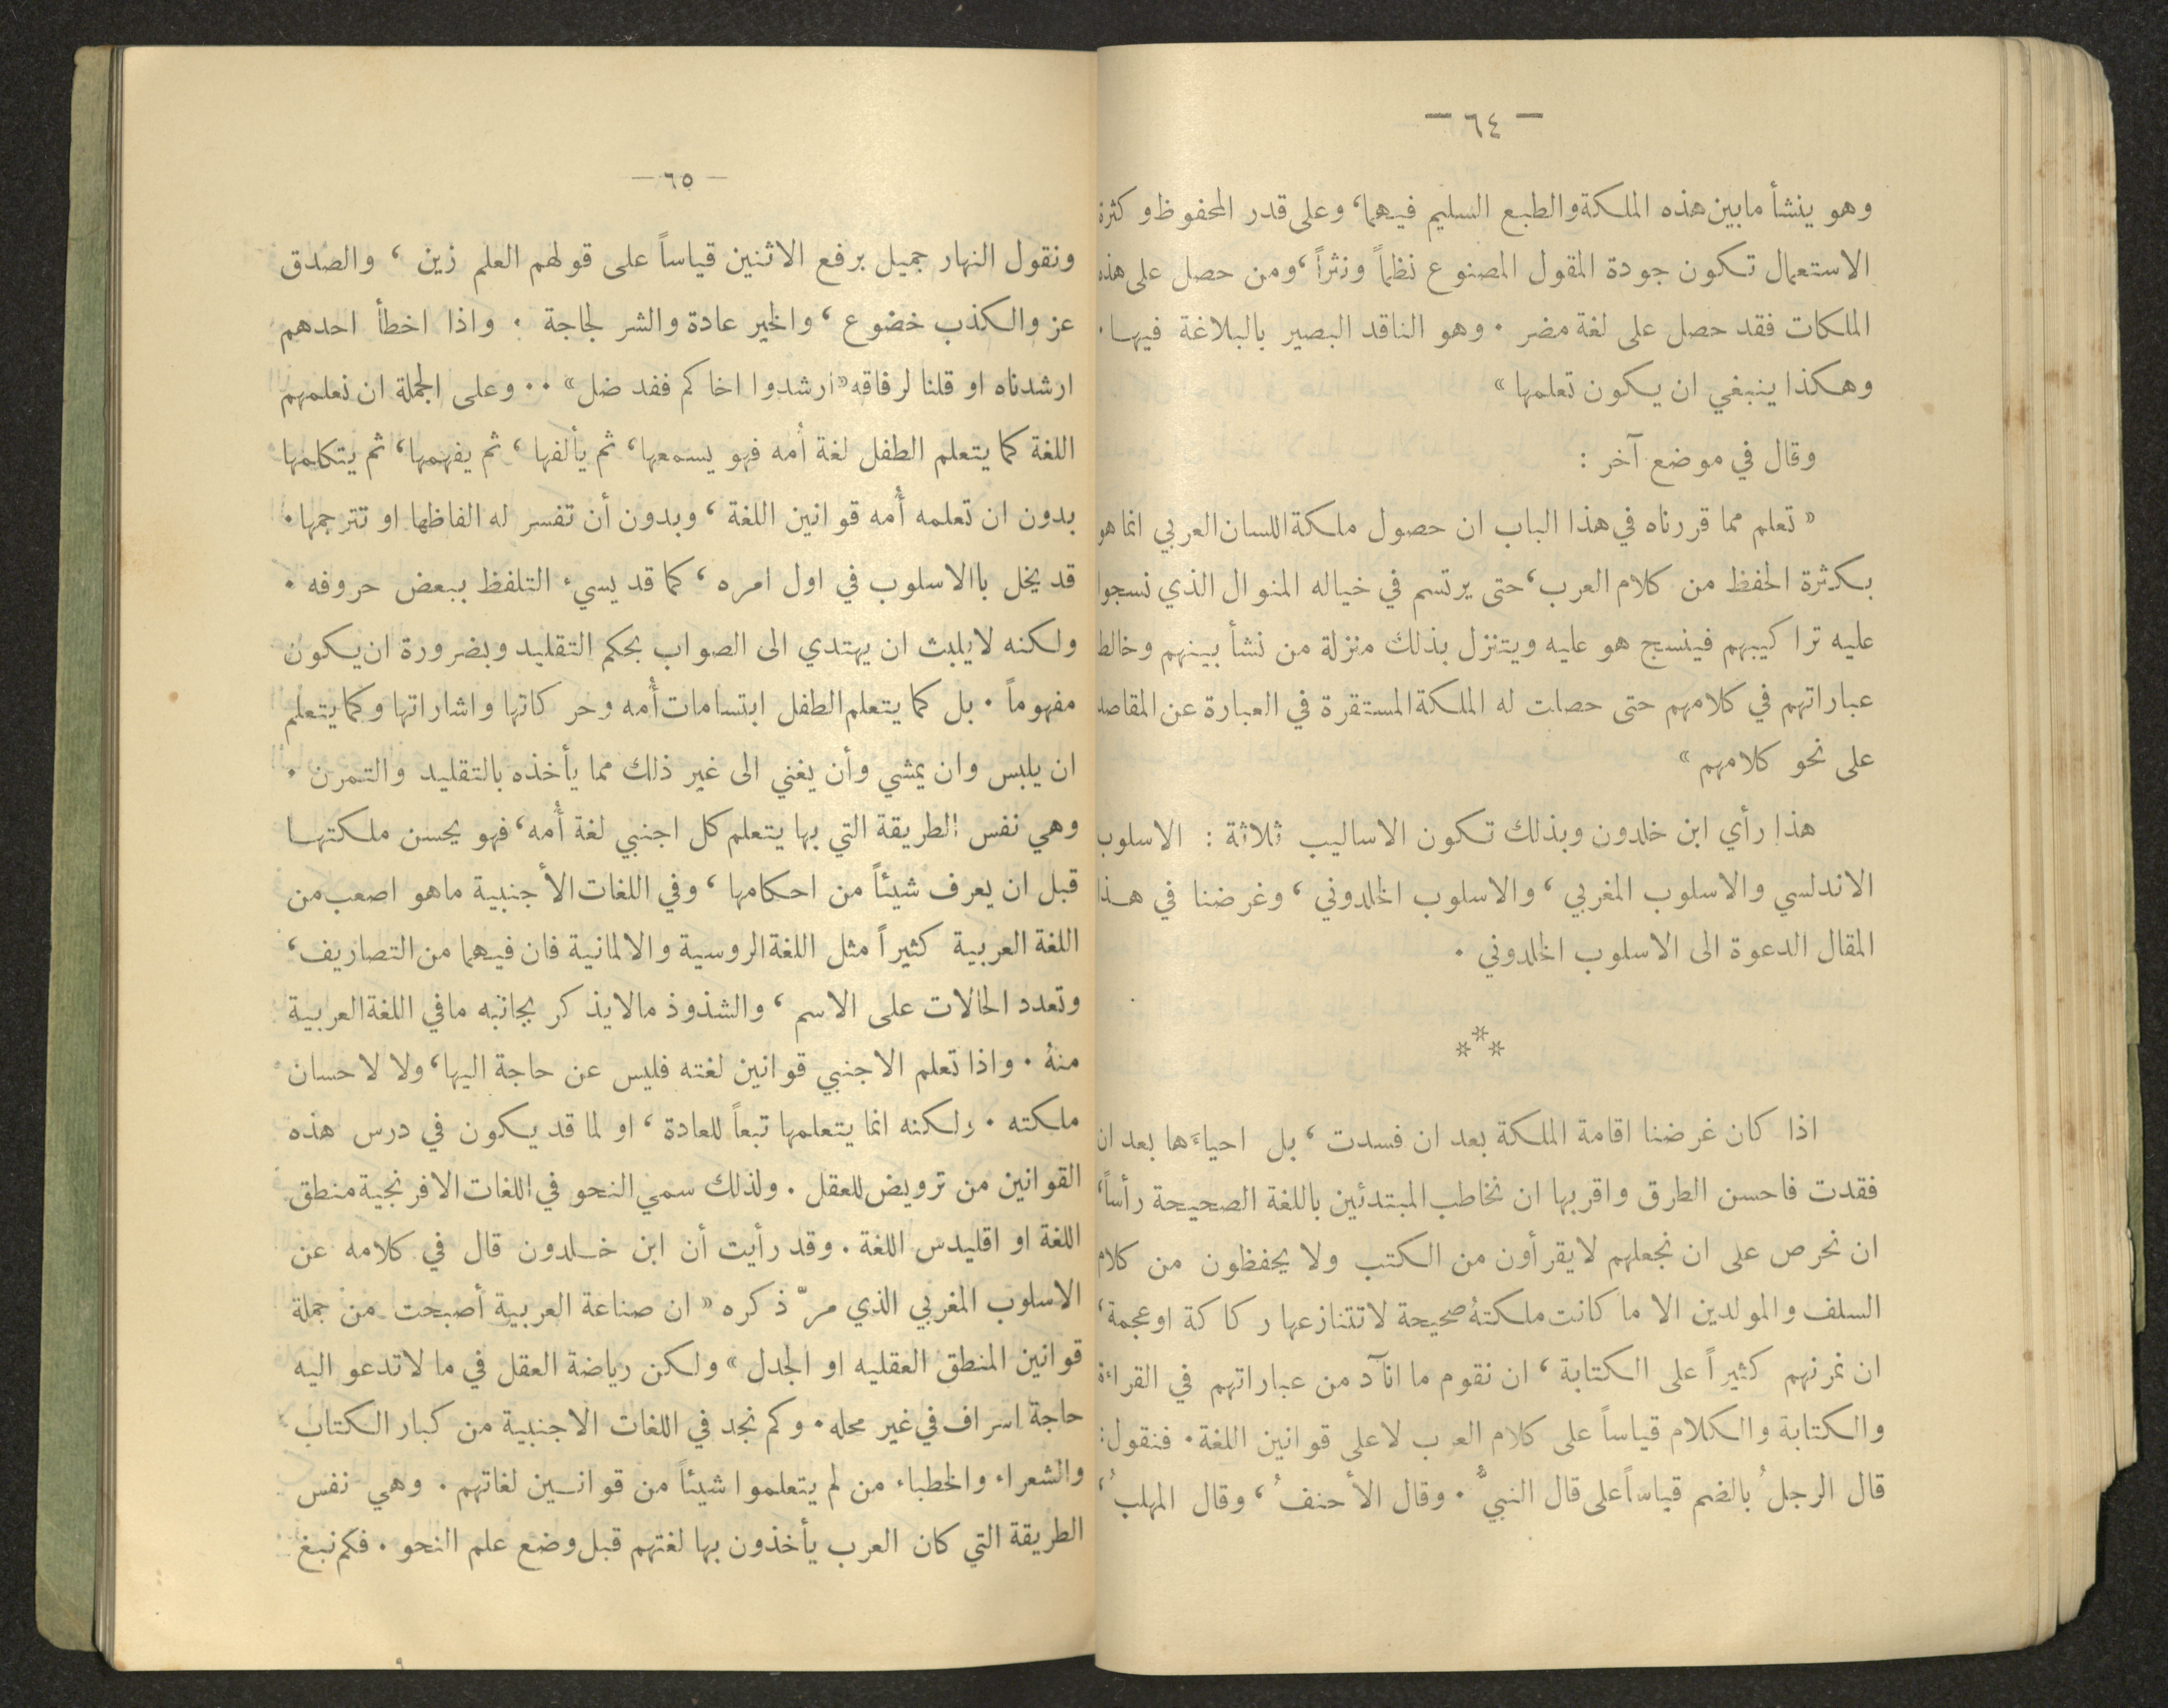 — ٦٤ —
وهو ينشأ مابين هذه الملكة والطبع السليم فيهما، وعلى قدر المحفوظ وكثرة
الاستعمال تكون جودة المقول المصنوع نظماً ونثراً، ومن حصل على هذه
الملكات فقد حصل على لغة مضر . وهو الناقد البصير بالبلاغة فيها.
وهكذا ينبغي ان يكون تعلمها »
وقال في موضع آخر :
« تعلم مما قررناه في هذا الباب ان حصول ملكة اللسان العربي انما هو
بكثرة الحفظ من كلام العرب، حتى يرتسم في خياله المنوال الذي نسجوا
عليه تراكيبهم فينسج هو عليه ويتنزل بذلك منزلة من نشأ بينهم وخالط
عباراتهم في كلامهم حتى حصلت له الملكة المستقرة في العبارة عن المقاصد
على نحو كلامهم »
هذا رأي ابن خلدون وبذلك تكون الاساليب ثلاثة : الاسلوب
الاندلسي والاسلوب المغربي ، والاسلوب الخلدوني ، وغرضنا في هذا
المقال الدعوة الى الاسلوب الخلدوني .
***
اذا كان غرضنا اقامة الملكة بعد ان فسدت ، بل احياءَها بعد ان
فقدت فاحسن الطرق واقربها ان نخاطب المبتدئين باللغة الصحيحة رأساً،
ان نحرص على ان نجعلهم لايقرأون من الكتب ولا يحفظون من كلام
السلف والمولدين الا ما كانت ملكتهُ صحيحة لاتتنازعها ركاكة اوعجمة،
ان نمرنهم كثيراً على الكتابة ، ان نقوم ما انآد من عباراتهم في القراءة
والكتابة والكلام قياساً على كلام العرب لاعلى قوانين اللغة . فنقول:
قال الرجلُ بالضم قياساً على قال النبيُّ . وقال الأحنفُ ، وقال المهلبُ ،
— ٦٥ —
ونقول النهار جميل برفع الاثنين قياساً على قولهم العلم زين ، والصدق
عز والكذب خضوع ، والخير عادة والشر لجاجة . واذا اخطأ احدهم
ارشدناه او قلنا لرفاقه «ارشدوا اخاكم فقد ضل» .. وعلى الجملة ان نعلمهم
اللغة كما يتعلم الطفل لغة أمه فهو يسمعها، ثم يألفها ، ثم يفهمها، ثم يتكلمها
بدون ان تعلمه أُمه قوانين اللغة ، وبدون أن تفسر له الفاظها او تترجمها.
قد يخل باالاسلوب في اول امره ، كما قد يسيء التلفظ ببعض حروفه .
ولكنه لايلبث ان يهتدي الى الصواب بحكم التقليد وبضرورة ان يكون
مفهوماً . بل كما يتعلم الطفل ابتسامات أُمه وحركاتها واشاراتها وكما يتعلم
ان يلبس وان يمشي وأن يغني الى غير ذلك مما يأخذه بالتقليد والتمرن .
وهي نفس الطريقة التي بها يتعلم كل اجنبي لغة أُمه، فهو يحسن ملكتها
قبل ان يعرف شيئاً من احكامها ، وفي اللغات الأجنبية ماهو اصعب من
اللغة العربية كثيراً مثل اللغة الروسية والالمانية فان فيهما من التصاريف،
وتعدد الحالات على الاسم ، والشذوذ مالايذكر بجانبه مافي اللغة العربية
منهُ . واذا تعلم الاجنبي قوانين لغته فليس عن حاجة اليها، ولا لاحسان
ملكته . ولكنه انما يتعلمها تبعاً للعادة ، او لما قد يكون في درس هذه
القوانين من ترويض للعقل . ولذلك سمي النحو في اللغات الافرنجية منطق
اللغة او اقليدس اللغة . وقد رأيت أن ابن خلدون قال في كلامه عن
الاسلوب المغربي الذي مرّ ذكره « ان صناعة العربية أصبحت من جملة
قوانين المنطق العقليه او الجدل » ولكن رياضة العقل في ما لاتدعو اليه
حاجة اسراف في غير محله . وكم نجد في اللغات الاجنبية من كبار الكتاب
والشعراء والخطباء من لم يتعلموا شيئاً من قوانين لغاتهم . وهي نفس
الطريقة التي كان العرب يأخذون بها لغتهم قبل وضع علم النحو . فكم نبغ
٩